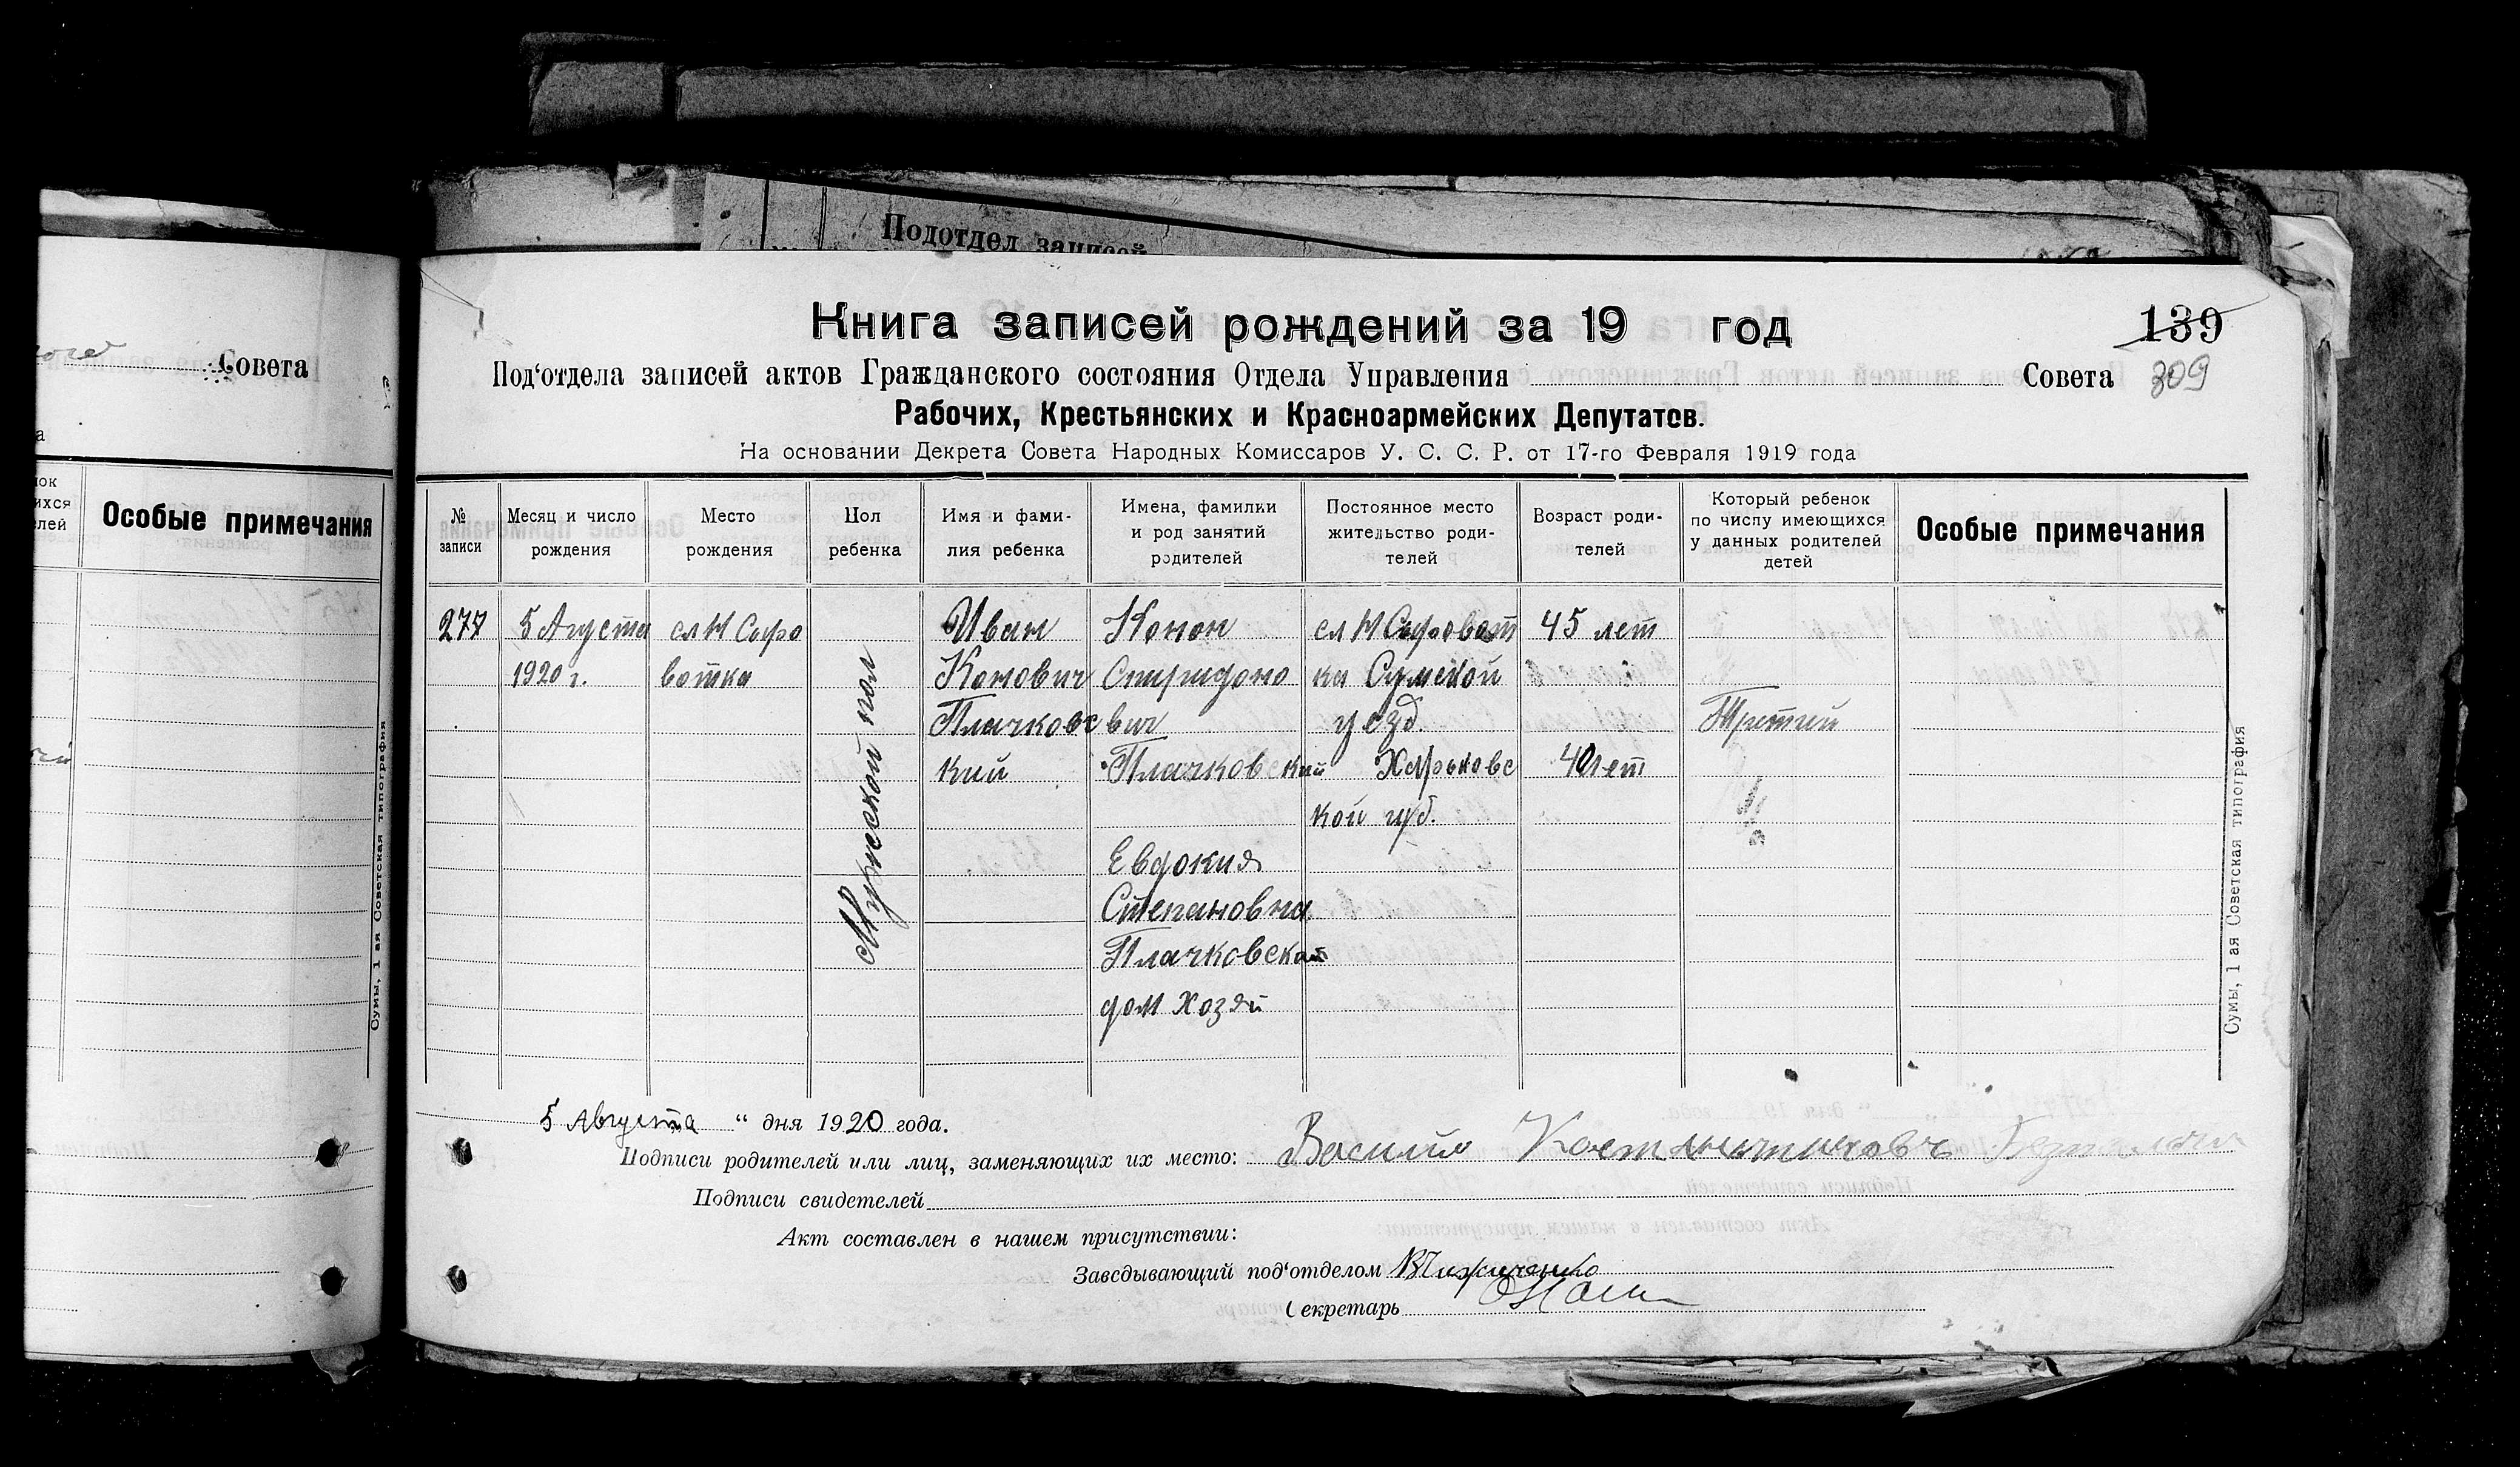 Подотдел записей
Совета
Особые примечания
Сумы, 1 ая Советская типография
Книга записей рождений за 19 год
139
309
Под‘отдела записей актов Гражданского состояния Отдела Управления Совета
Рабочих, Крестьянских и Красноармейских Депутатов.
На основании Декрета Совета Народных Комиссаров У. С. С. Р. от 17-го Февраля 1919 года
№
записи
Месяц и число
рождения
Место
рождения
Пол
ребенка
Имя и фами-
лия ребенка
Имена, фамилки
и род занятий
родителей
Постоянное место
жительство роди-
телей
Возраст роди-
телей
Который ребенок
по числу имеющихся
у данных родителей
детей
Особые примечания
277
5 Августа
1920 г.
сл Н Сыро
ватка
Мужеской пол
Иван
Конович
Плачковс
кий
Конон
Спиридоно
вич
Плачковский
Евдокия
Степановна
Плачковская
дом хозяй
сл Н Сыроват
ка Сумской
уезд.
Харьковс
кой губ.
45 лет
40 лет
Третий
Сумы, 1 ая Советская типография
5 Августа “ дня 1920 года.
Подписи родителей или лиц, заменяющих их место: Василий
Подписи свидетелей
Акт составлен в нашем присутствии:
Заведывающий под‘отделом
Секретарь